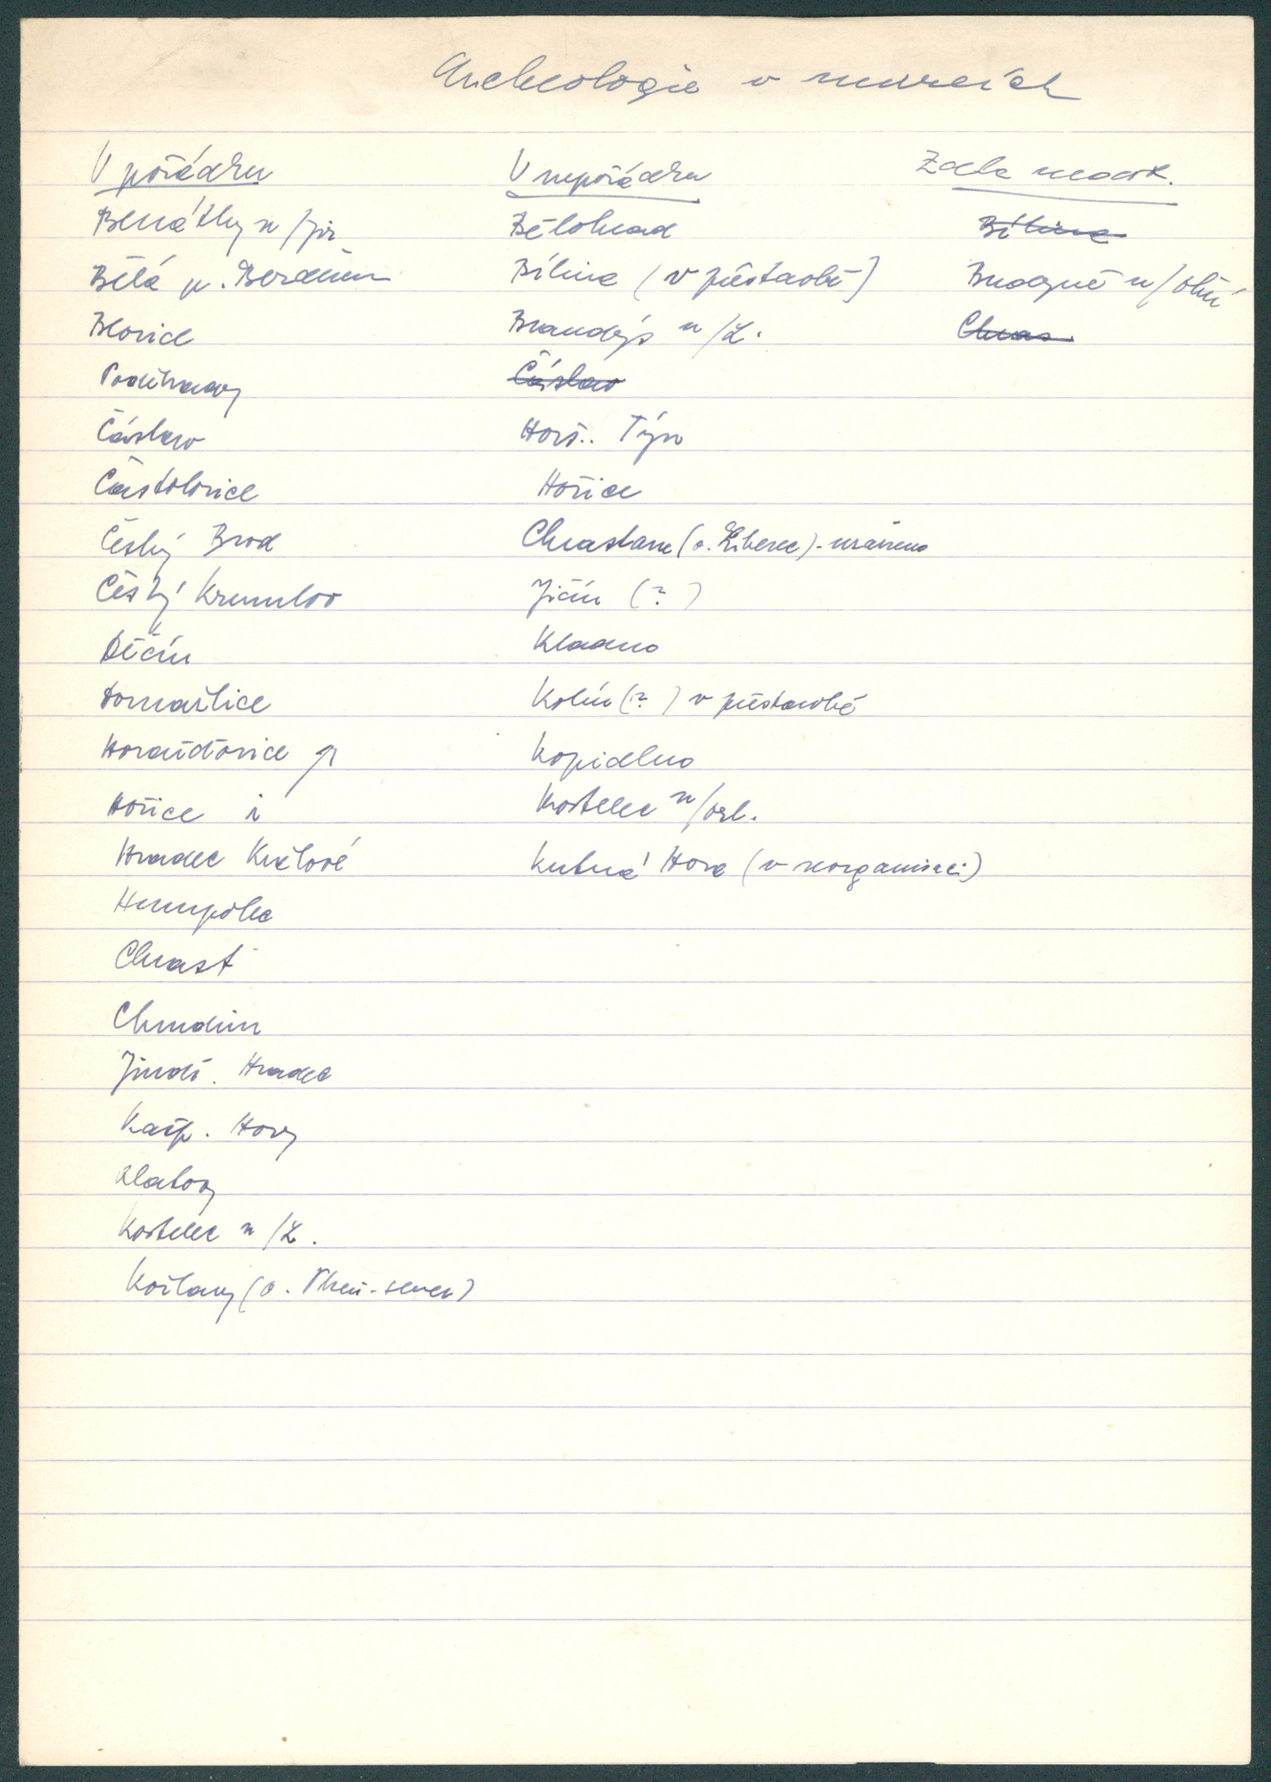 Archeologie v museích
V pořádku
Benátky n/Jiz.
Bělá p. Bezdězem
Blovice
Poděbrady
Čáslav
Častolovice
Český Brod
Český Krumlov
Děčín
Domažlice
Horažďovice
Hořice
Hradec Králové
Humpolec
Chrast
Chrudim
Jindř. Hradec
Kašp. Hory
Klatovy
Kostelec n/L.
Kožlany (o. Plzeň-sever)
V nepořádku
Bělohrad
Bílina (v přestavbě)
Brandýs n/L.
Čáslav
Horš. Týn
Hořice
Chrastava (o. Liberec) - zrušeno
Jičín (?)
Kladno
Kolín (?) v přestavbě
Kopidlno
Kostelec n/Orl.
Kutná Hora (v reorganisaci)
Zcela nedost.
Bílina
Budyně n/Ohří
Chras